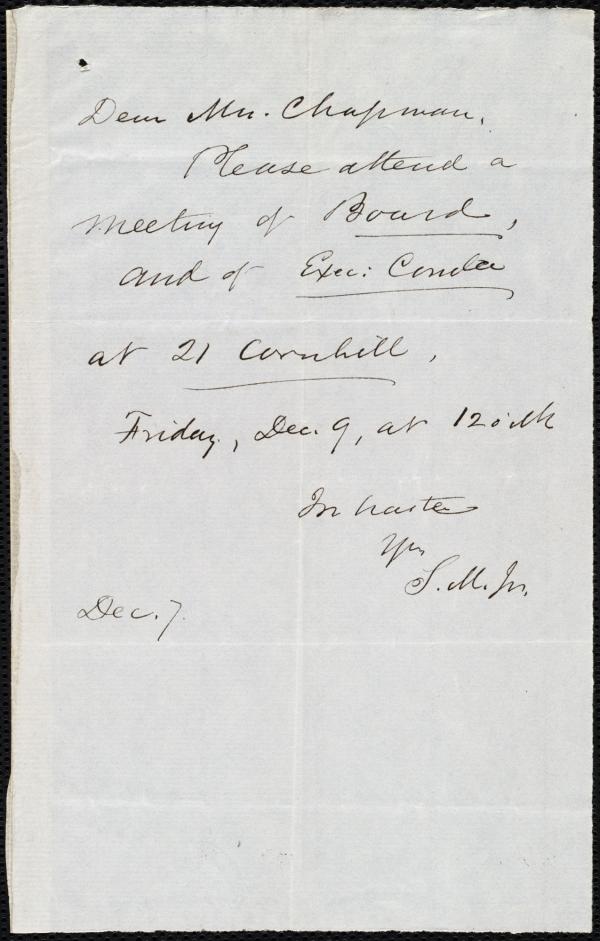 Dear Mrs. Chapman,
Please attend a
meeting of Board,
and of Exec: Comtee
at 21 Cornhill,
Friday, Dec. 9, at 12 o'clk
In haste
Yrs
S. M. Jr.
Dec. 7.